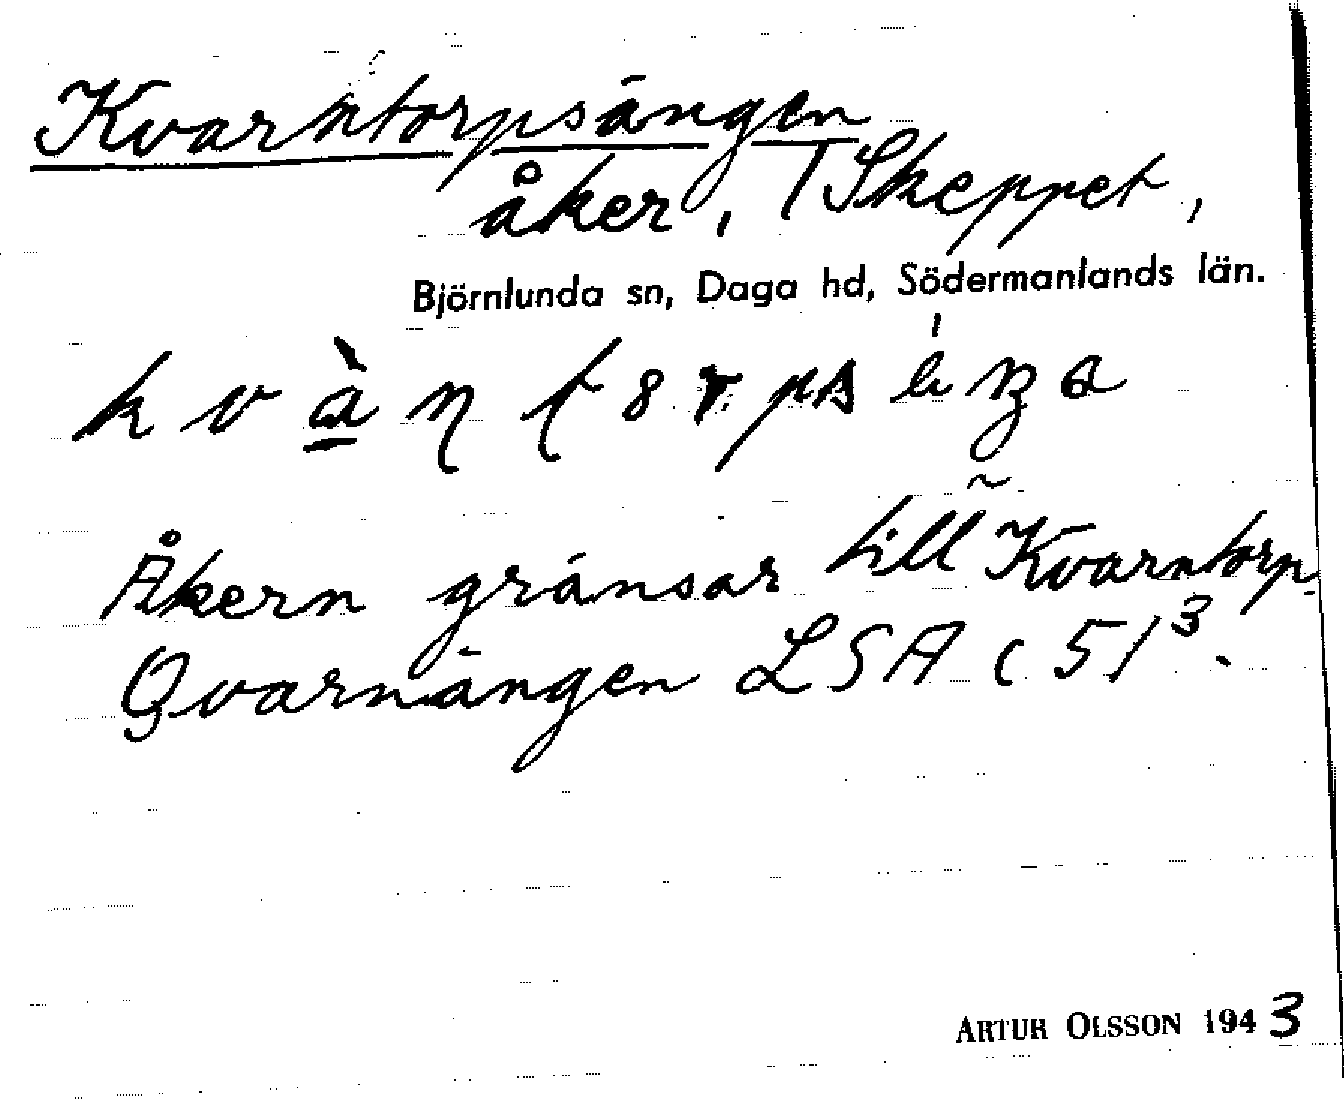 Kvarntorpsängen
åker, T Skeppet,
Björnlunda sn, Daga hd, Södermanlands län.
Åkern gränsar till Kvarntorp.
Qvarnängen LSA C 51³.
ARTUR OLSSON 1943